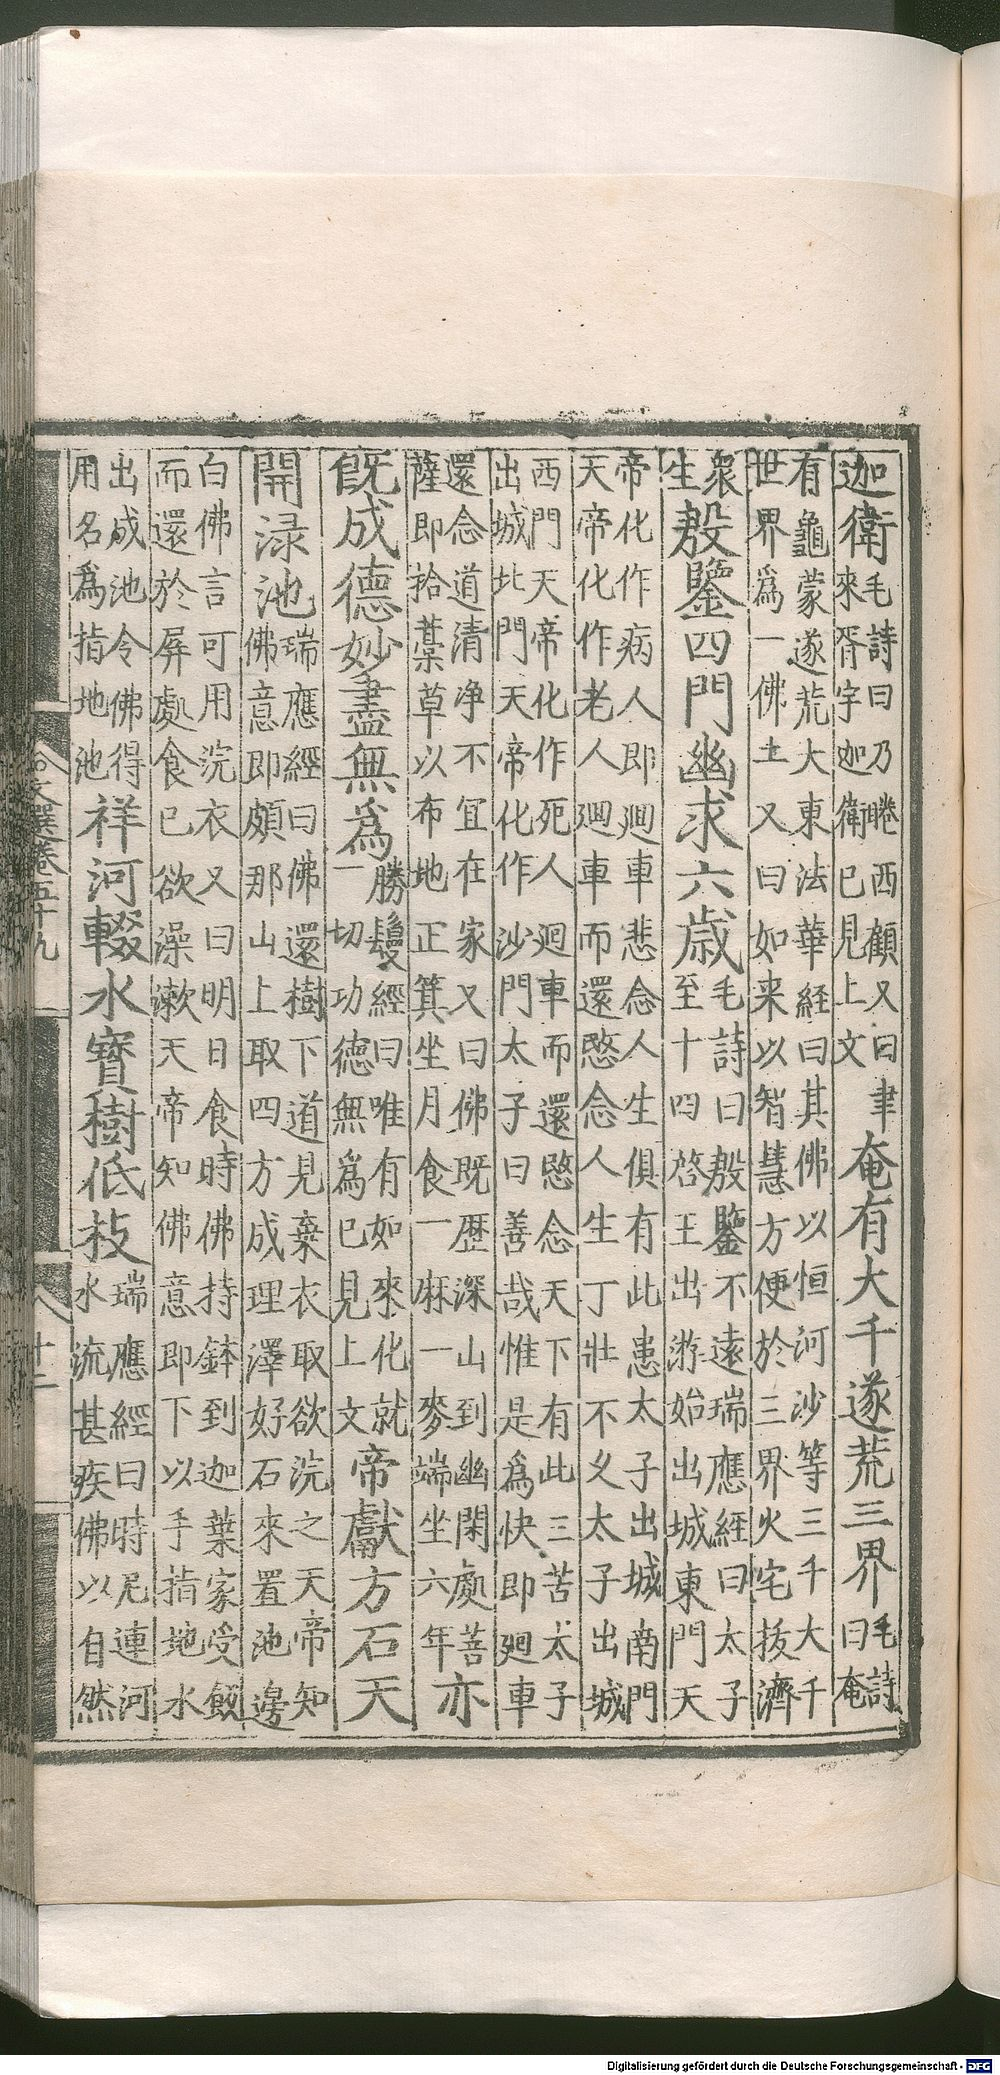 迦衛毛詩曰乃睠西顧又曰聿來胥宇迦衛已見上文奄有大千遂荒三界毛詩曰奄
有龜蒙遂荒大東法華経曰其佛以恒河沙等三千大千世界爲一佛土又曰如来以智慧方便於三界火宅拔濟
衆生殷鑒四門幽求六歳毛詩曰殷鑒不遠瑞應經曰太子至十四啓王出游始出城東門天
帝化作病人即迴車悲念人生俱有此患太子出城南門天帝化作老人迴車而還愍念人生丁壯不久太子出城
西門天帝化作死人迴車而還愍念天下有此三苦太子出城北門天帝化作沙門太子曰善哉惟是爲快即迴車
還念道清净不宜在家又曰佛既歴深山到幽閑處菩薩即拾藁草以布地正箕坐月食一麻一麥端坐六年亦
既成德妙盡無爲勝鬘經曰唯有如來化就一切功德無爲已見上文帝獻方石天
開渌池瑞應經曰佛還樹下道見棄衣取欲浣之天帝知佛意即頗那山上取四方成理澤好石來置池邊
白佛言可用浣衣又曰明日食時佛持鉢到迦葉家受飯而還於屏處食已欲澡漱天帝知佛意即下以手指地水
出成池令佛得用名爲指地池祥河輟水寶樹低枝瑞應經曰時尼連河水流甚疾佛以自然
文選卷五十九
十二
Digitalisierung gefördert durch die Deutsche Forschungsgemeinschaft - DFG